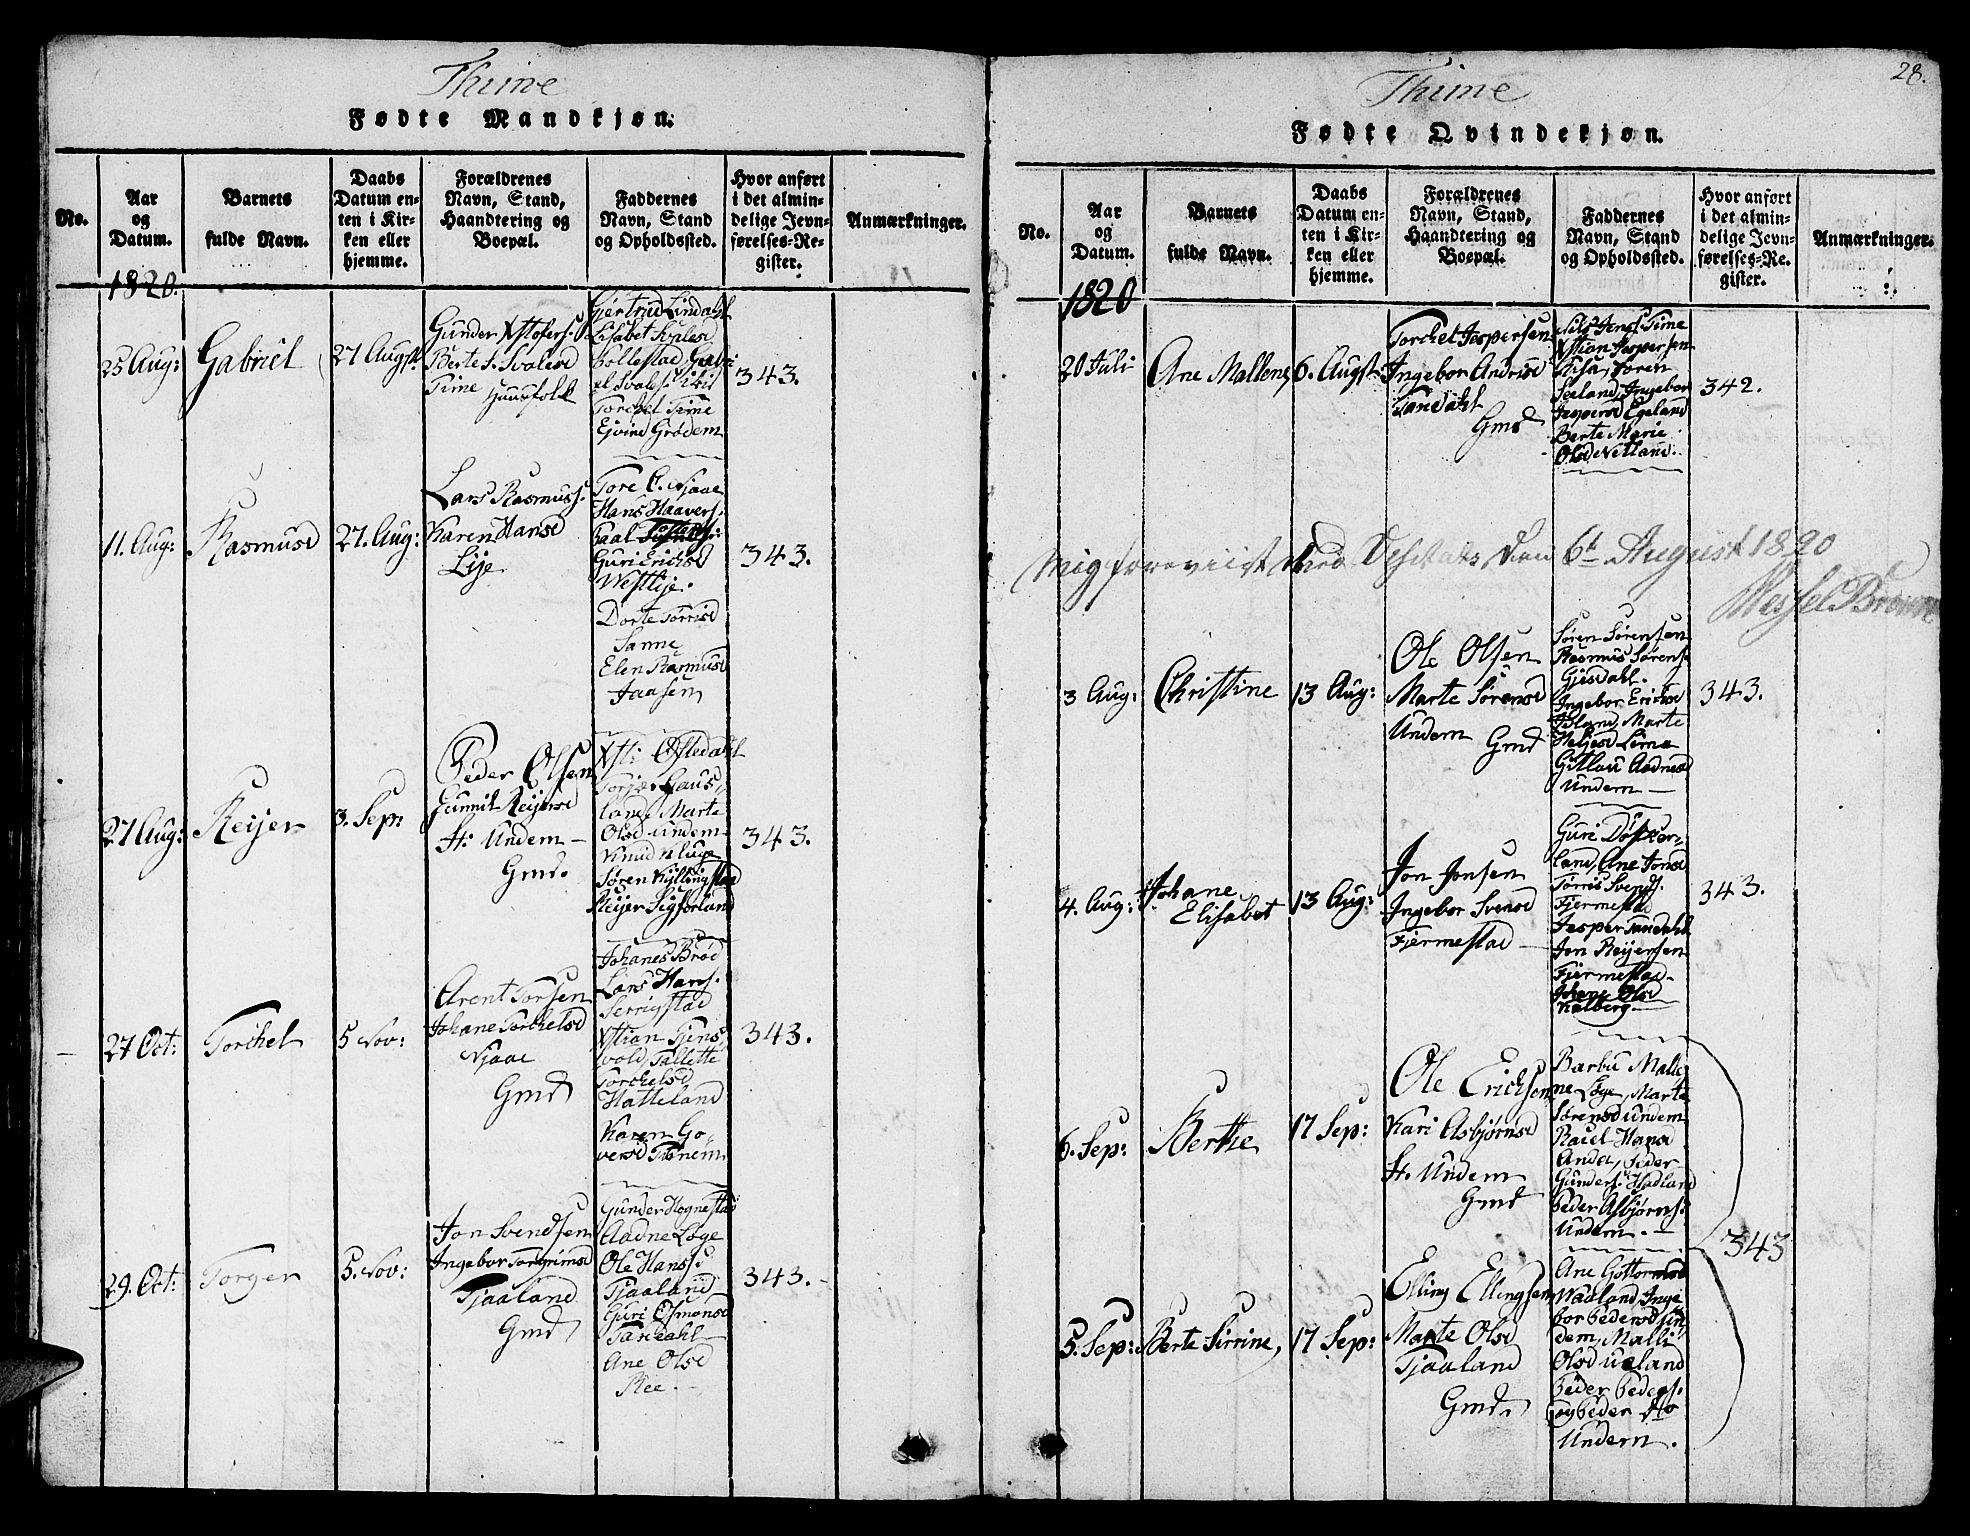 Thime
Fødte Mandkjøn.
No.
Aar
og
Datum.
Barnets
fulde Navn.
Daabs
Datum en-
ten i Kir-
ken eller
hjemme.
Forældrenes
Navn, Stand,
Haandtering og
Boepæl.
Faddernes
Navn, Stand
og Opholdssted.
Hvor anført
i det almin-
delige Jevn-
førelses-Re-
gister.
Anmærkninger.
1820.
25 Aug:
Gabriel
27 Augst.
Gunder
Berte S. Svalesd
Time Huusfolk
Gjertrud Lindahl
Lisabet
Kollestad
Torchel Time
Ejvind Grødem
343.
11. Aug:
Rasmus
27. Aug:
Lars Rasmuss.
Karen Hansd
Lije
Tore O. Njaae
Hans Haavers.
Guri Erichsd
Westlije.
Dorte Torrisd
Sanne
Elen Rasmusd
343.
27 Aug:
Reijer
3. Sep:
Peder Olsen
Gunnil Reijersd
St: Undem
Gmd.
land, Marte
Olsd Undem
Knud Kluge
Søren Kyllingstad
Reijer Sigforland
343.
27 Oct:
Torchel
5 Nov:
Arent Torsen
Johane Torchelsd
Njaae
Gmd
Johanes Brød
Lars Hans.
Serrigstad
vold, Tallette
Torchelsd
Hatteland
Karen Go-
versd Tronem
343.
29. Oct:
Torger
5. Nov:
Jon Svendsen
Ingebor Torgrimsd
Tjaaland
Gmd
Gunder Hognestad
Aadne Løge
Ole Hanss:
Tjaaland
Guri Osmonsd
Tarldahl
Ane Olsd
Ree.
343.
28.
Thime
Fødte Qvindekjøn.
No.
Aar
og
Datum.
Barnets
fulde Navn.
Daabs
Datum en-
ten i Kir-
ken eller
hjemme.
Forældrenes
Navn, Stand,
Haandtering og
Boepæl.
Faddernes
Navn, Stand
og Opholdssted.
Hvor anført
i det almin-
delige Jevn-
førelses-Re-
gister.
Anmærkninger.
1820
20 Juli
Ane Mallene,
6. Augst
Torchel Jespersen
Ingebor Andrisd
Gmd
Nils Jens. Time
Søren
Seeland, Ingebor
Jespersd Egeland
Berte Marie
Olsd Netland.
342.
Mig foreviist ved Visitats den 6t August 1820
Wessel Brown
3 Aug:
Christine
13 Aug:
Ole Olsen
Marte Sørensd
Undem Gmd
Søren Sørensen
Rasmus Sørens.
Gjesdahl.
Ingebor Ericksd
Marte
Lima
Aadnesd
Undem
343.
4. Aug:
Johane
Elisabet
13 Aug:
Jon Jonsen
Ingebor Svensd
Fjermestad
Guri
land, Ane Jonsd
Torris Svends.
Fjermestad
Jesper
Jon Reijersen
Fjermestad
Johane Olsd
Kalberg
343.
6. Sep:
Berthe
17 Sep:
Ole Erichsen
Kari Asbjørnsd
St. Undem
Gmd
Barbu Malle
ne Løge, Marte
Sørensd Undem
Raiel Hansd
Anda, Peder
Gunders. Hadland
Peder Asbjørns.
Undem.
343
5. Sep:
Berte Sirrine,
17 Sep:
Elling Ellingsen
Marte Olsd
Tjaaland
Gmd.
Ane Gottormsd
Waaland, Inge
bor Pedersd Un
dem, Malli
Olsd Ueland
Peder Peders.
og Peder
Undem.